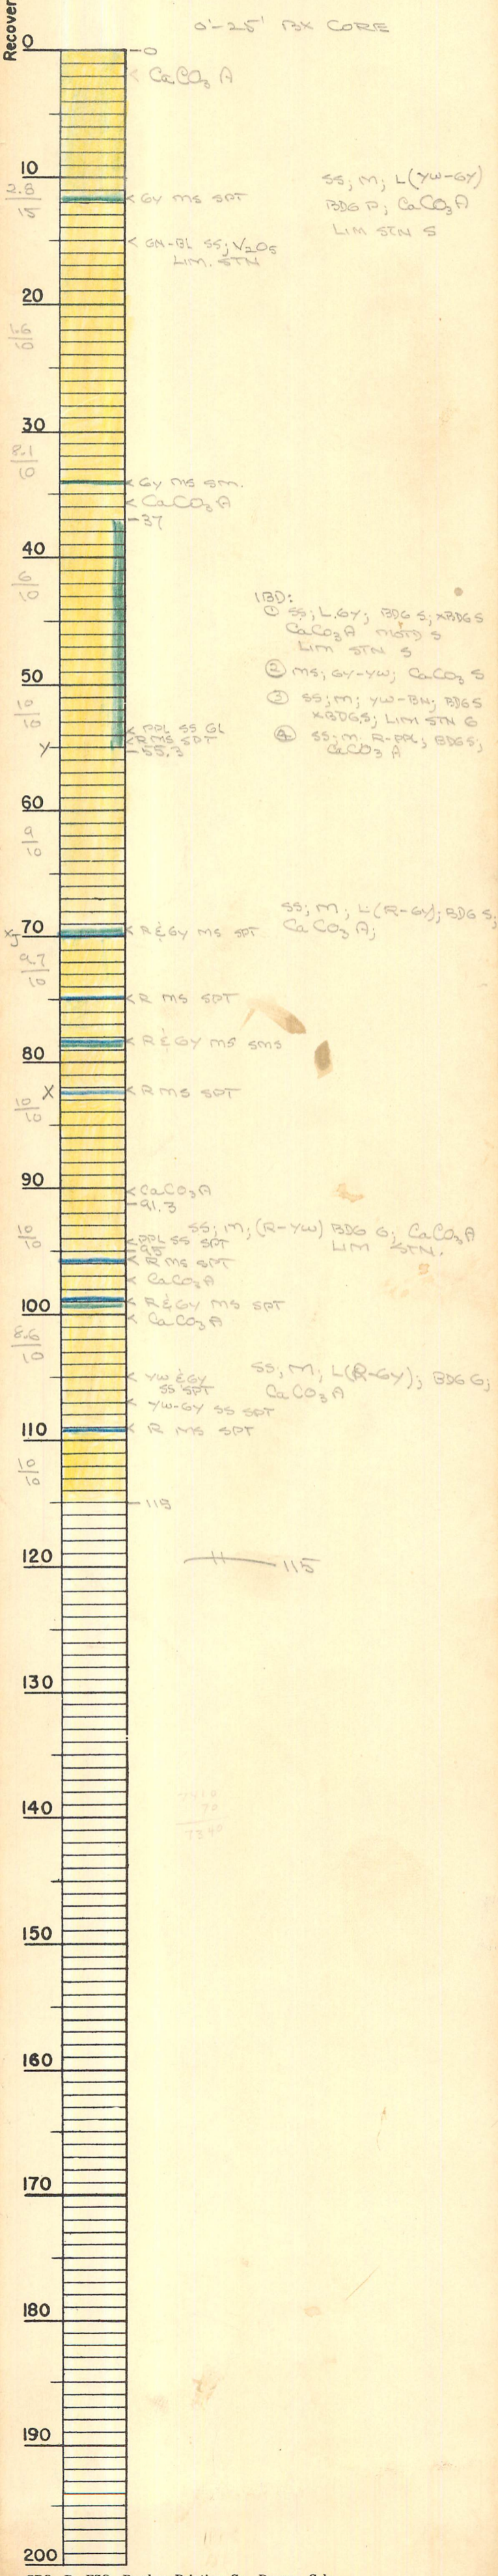 Recover
0'-25' BX CORE
0
-0
< CaCO3 A
10
SS; M; L(YW-GY)
BDG P; CaCO3 A
LIM STN S
2.8
15
< GY MS SPT
< GN-BL SS; V2O5
LIM. STN
20
1.6
10
30
8.1
10
< GY MS SM.
< CaCO3 A
-37
40
6
10
IBD:
① SS; L.GY; BDG S; XBDG S
CaCO3 A MOTD S
LIM STN S
② MS; GY-YW; CaCO3 S
③ SS; M; YW-BN; BDG S
XBDG S; LIM STN G
④ SS; M. R-PPL; BDG S;
CaCO3 A
50
10
10
< PPL SS GL
< R MS SPT
Y
-55.3
60
9
10
SS; M; L(R-GY); BDG S;
CaCO3 A;
70
XJ
< R & GY MS SPT
9.7
10
< R MS SPT
< R & GY MS SMS
80
X
< R MS SPT
10
10
90
< CaCO3 A
-91.3
SS; M; (R-YW) BDG G; CaCO3 A
LIM STN.
10
10
< PPL SS SPT
-95
< R MS SPT
< CaCO3 A
100
< R & GY MS SPT
< CaCO3 A
8.6
10
SS; M; L(R-GY); BDG G;
CaCO3 A
< YW & GY
SS SPT
< YW-GY SS SPT
110
< R MS SPT
10
10
-115
120
115
130
7410
70
7340
140
150
160
170
180
190
200